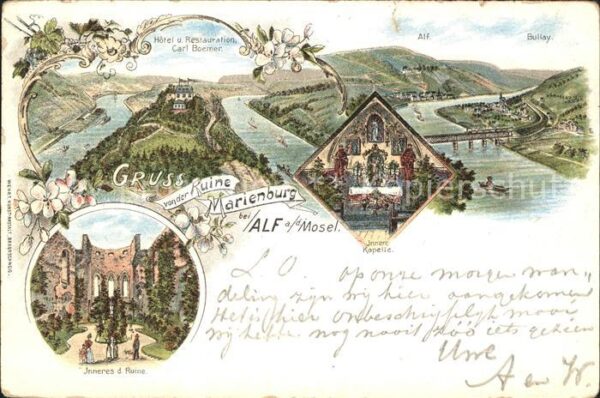 Hôtel u. Restauration,
Carl Boemer.
Alf.
Bullay.
GRUSS
von der Ruine
Marienburg
bei
ALF a/d Mosel.
Innere
Kapelle.
Inneres d. Ruine.
L. O. op onze morgen wan-
deling zijn wij hier aangekomen
Het is hier onbeschrijflijk mooi
wij hebben nog nooit zóó iets gezien
Uwe
A en W.